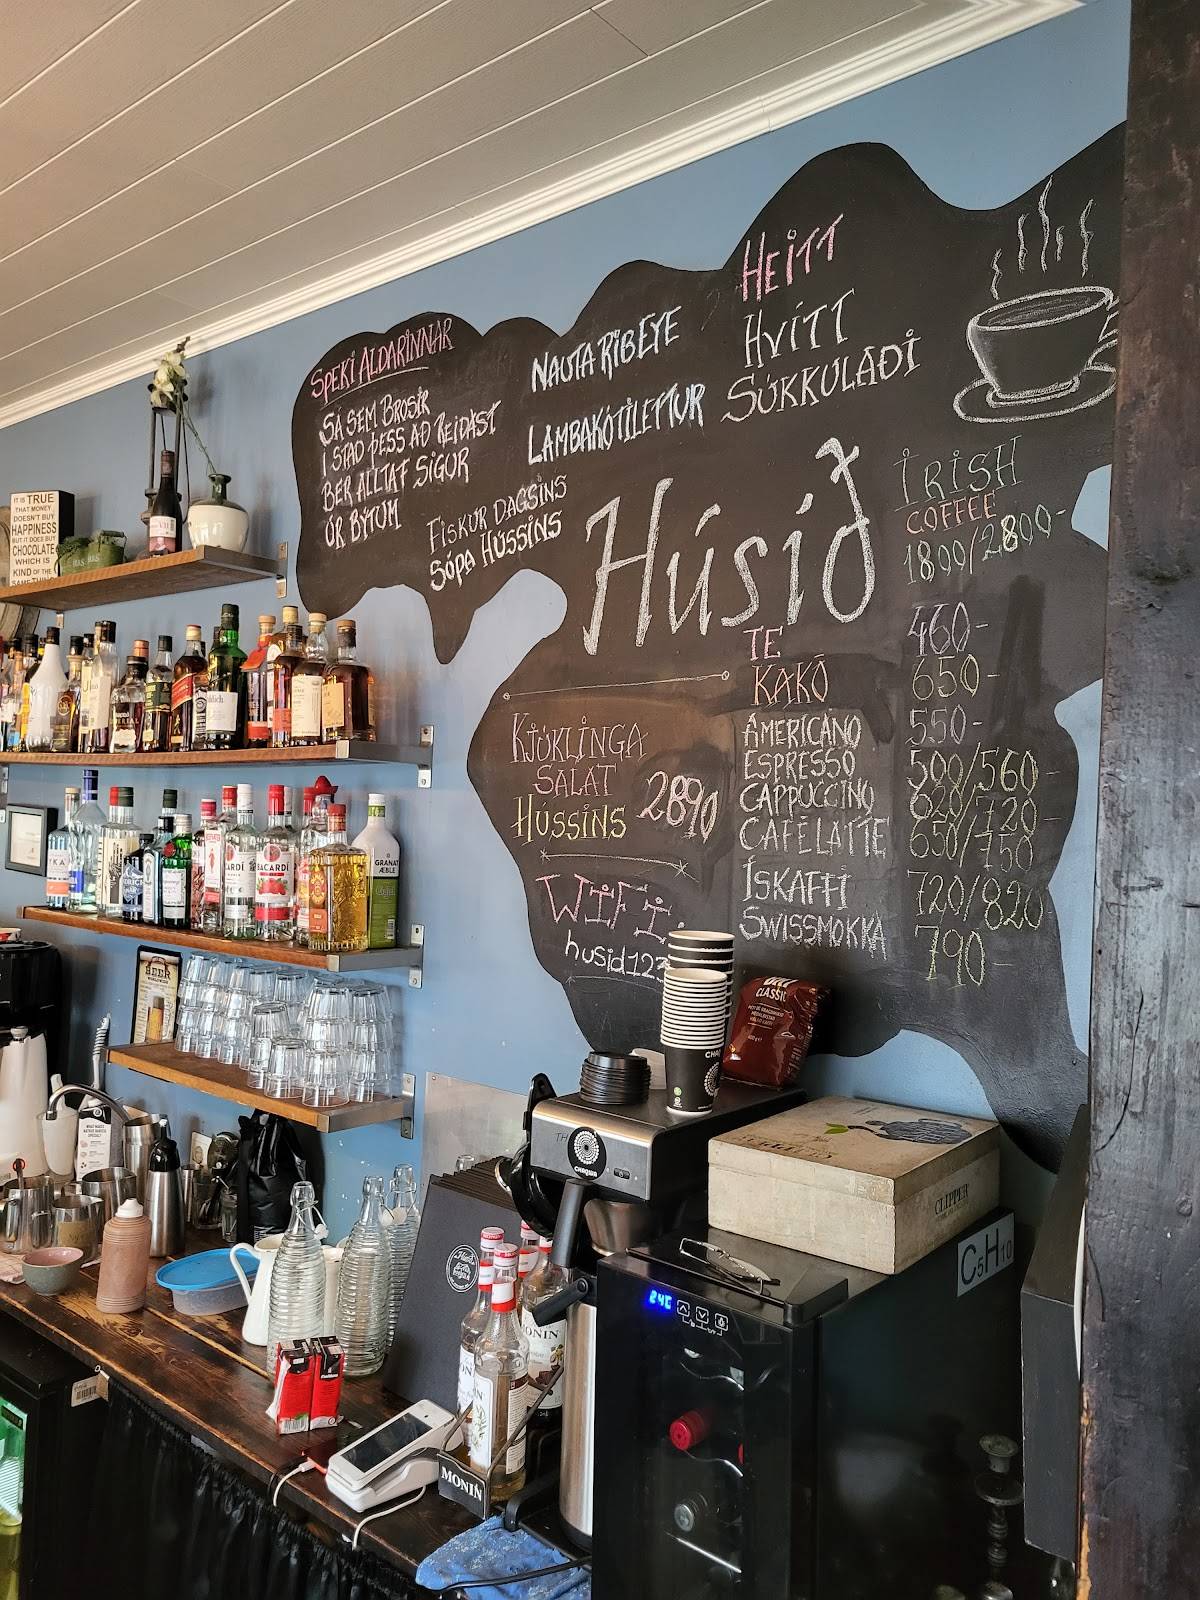 SPEKI ALDARINNAR
SÁ SEM BROSIR
Í STAÐ ÞESS AÐ REIÐAST
BER ALLTAF SIGUR
ÚR BÝTUM
NAUTA RIBEYE
LAMBAKÓTILETTUR
FISKUR DAGSINS
SÚPA HÚSSINS
HEITT
HVÍTT
SÚKKULAÐI
Húsið
IRISH
COFFEE
1800/2800-
TE 460-
KAKÓ 650-
AMERICANO 550-
ESPRESSO 500/560-
CAPPUCCINO 620/720-
CAFÉ LATTE 650/750
ÍSKAFFI 720/820-
SWISSMOKKA 790-
KJÚKLINGA
SALAT
HÚSSINS 2890
WIFI.
husid123
IT IS TRUE
THAT MONEY
DOESN'T BUY
HAPPINESS
BUT IT DOES BUY
CHOCOLATE
WHICH IS
KIND OF THE
SAME THING
BACARDI
GRANAT
ÆBLE
BEER
CLASSIC
CHAQWA
CLIPPER
C5H10
24C
MONIN
MONIN